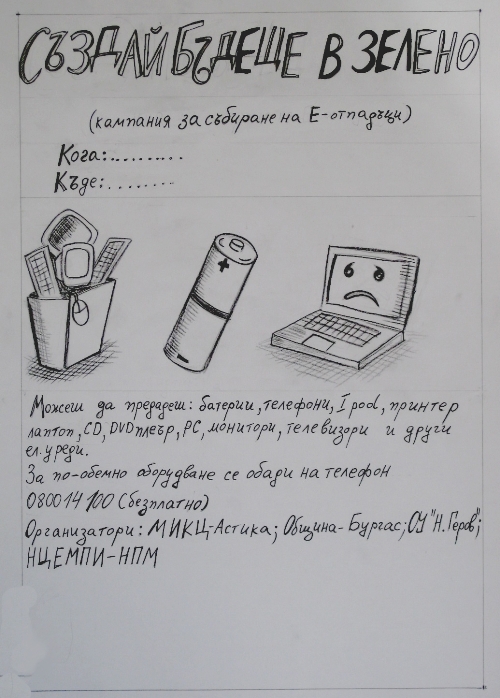 СЪЗДАЙ БЪДЕЩЕ В ЗЕЛЕНО
(кампания за събиране на Е-отпадъци)
Кога:..........
Къде:........
Можеш да предадеш: батерии, телефони, I pod, принтер
лаптоп, CD, DVD плеър, PC, монитори, телевизори и други
ел. уреди.
За по-обемно оборудване се обади на телефон
0800 14 100 (безплатно)
Организатори: МИКЦ-Астика; Община-Бургас; ОУ "Н. Геров";
НЦЕМПИ-НПМ